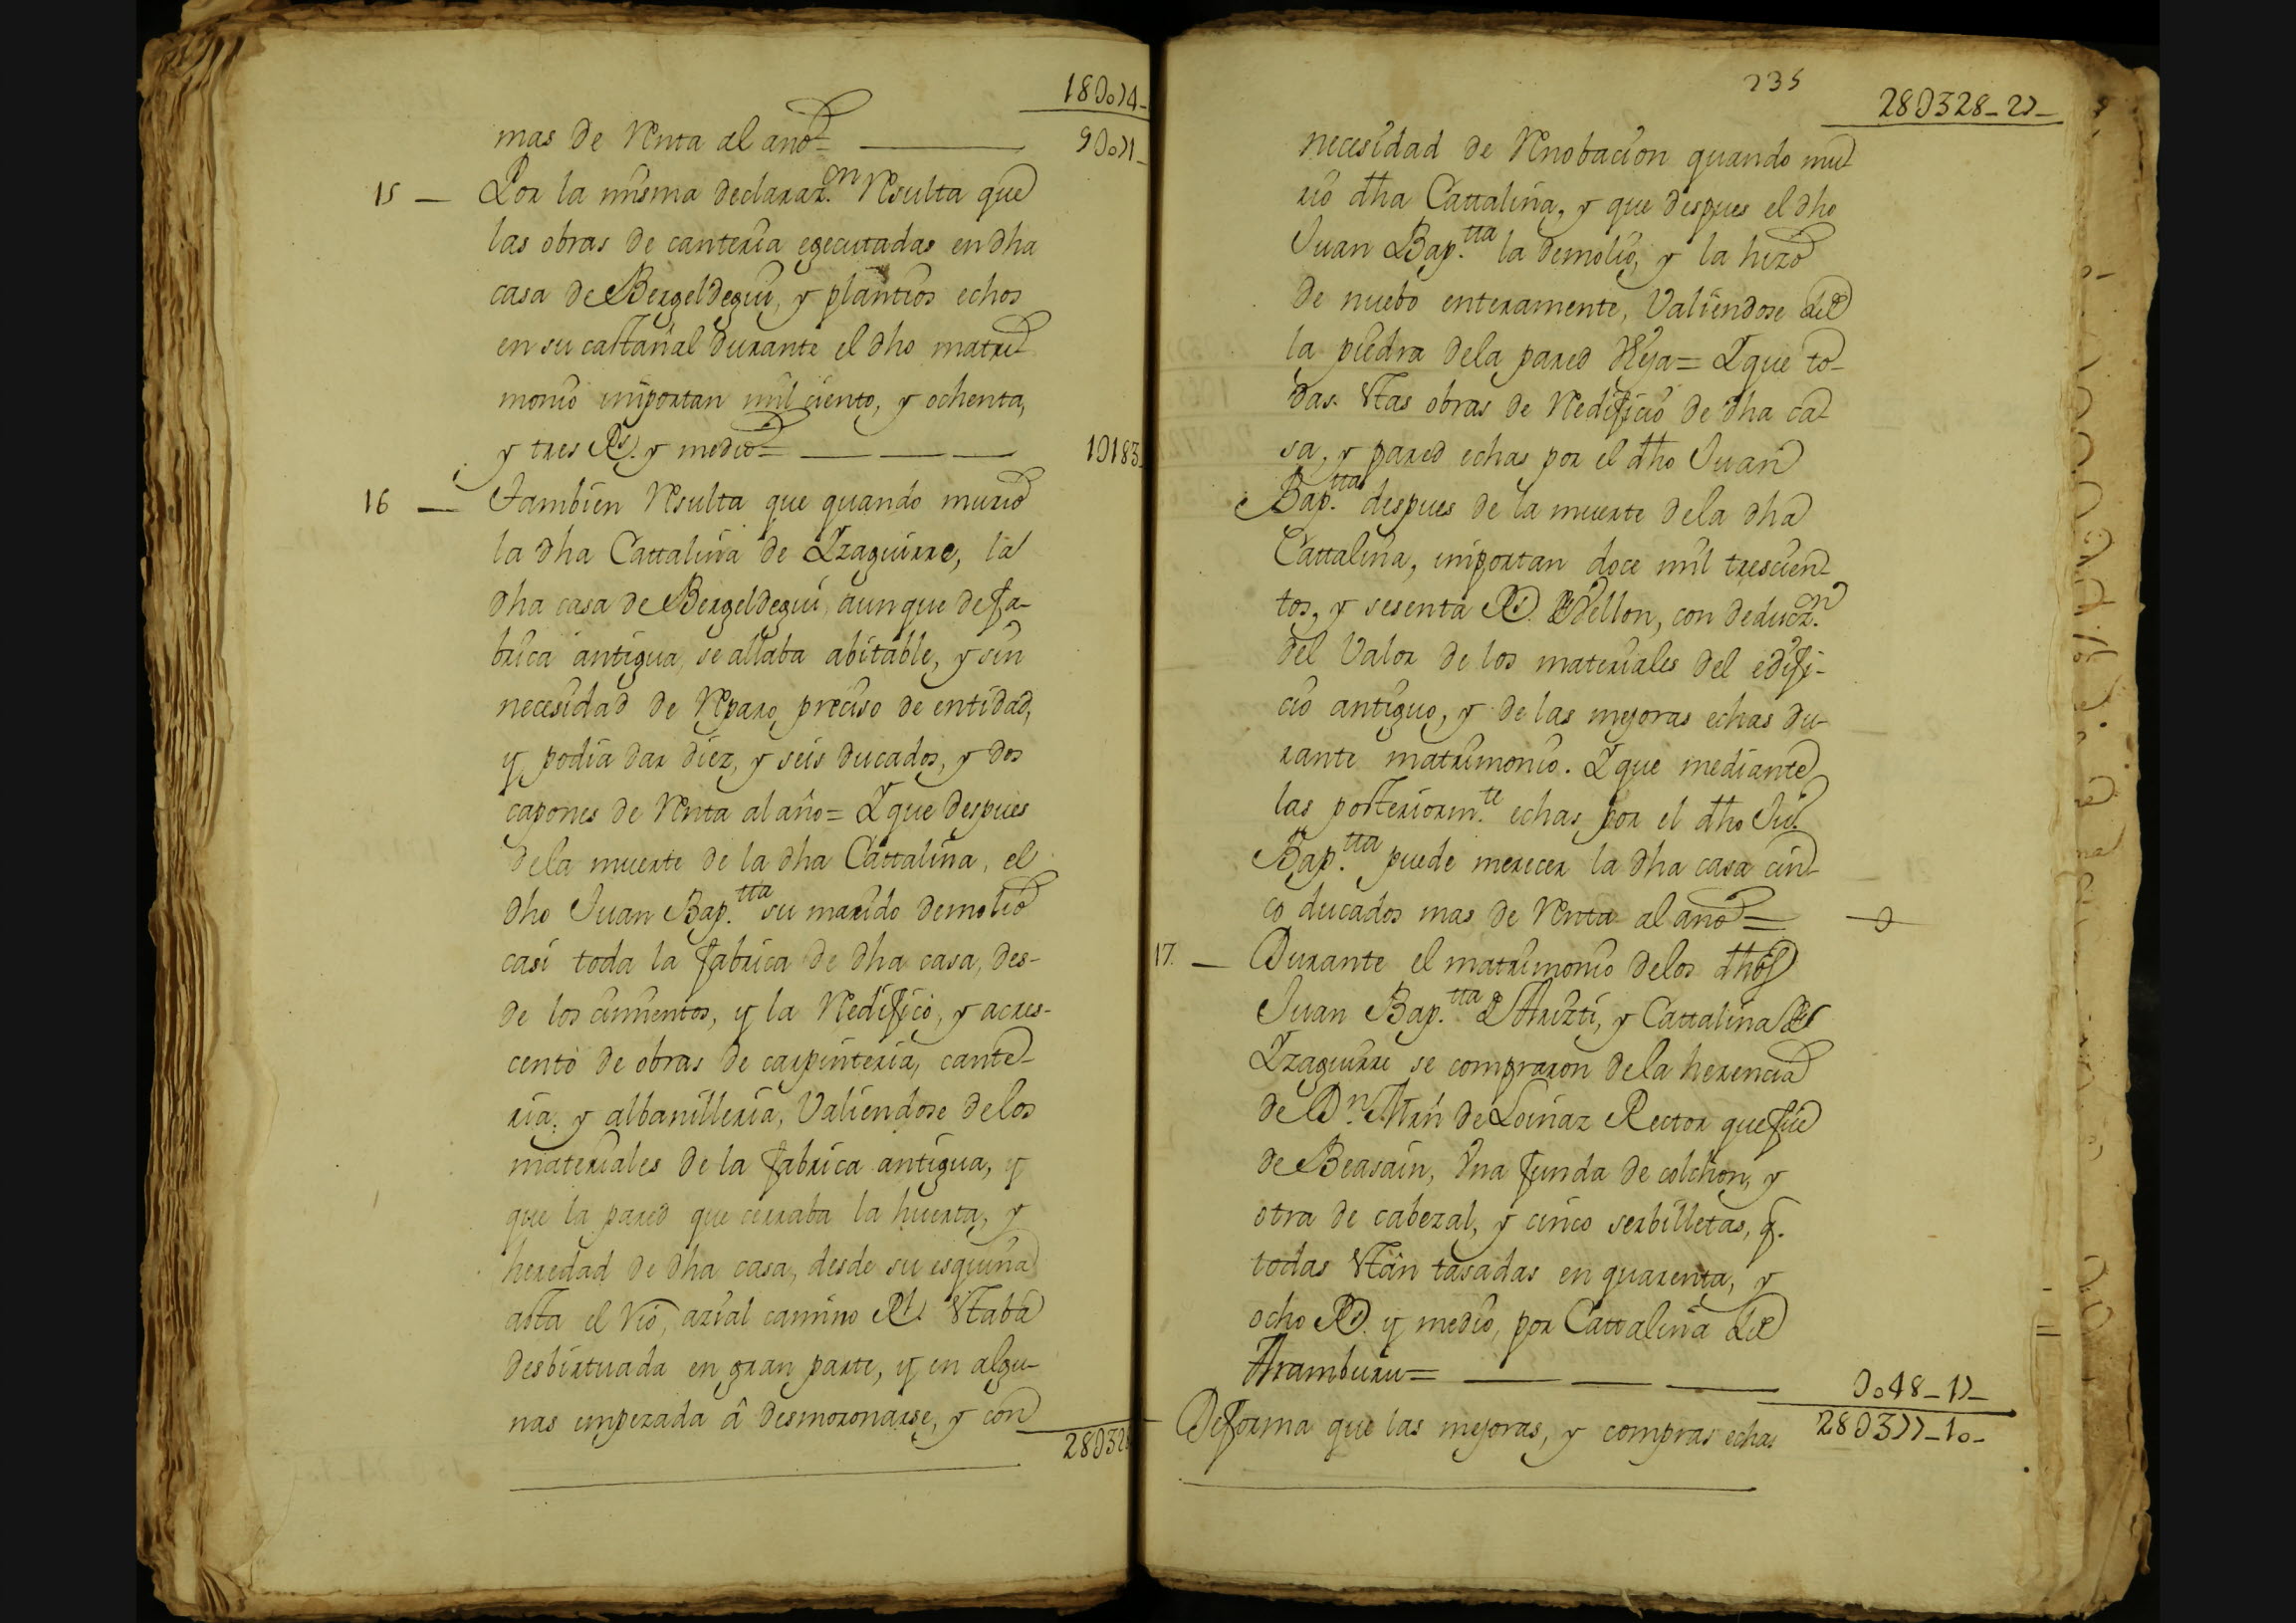 18U074-
mas de renta al año= 9U071-
15 — Por la misma declaraz.on resulta que
las obras de canteria egecutadas en dha
casa de Bergeldegui, y plantios echos
en su castañal durante el dho matri-
monio importan mil ciento, y ochenta,
y tres Rs. y medio= 1U183-
16 — Tambien resulta que quando murio
la dha Cattalina de Yzaguirre, la
dha casa de Bergeldegui, aunque de fa-
brica antigua, se allaba abitable, y sin
necesidad de reparo preciso de entidad,
y podia dar diez, y seis ducados, y dos
capones de renta al año= Y que despues
dela muerte de la dha Cattalina, el
dho Juan Bap.tta su marido demolio
casi toda la fabrica de dha casa, des-
de los cimientos, y la redifico, y acres-
centò de obras de carpinteria, cante-
ria, y albanilleria, Valiendose delos
materiales de la fabrica antigua, y
que la pared que cerraba la huerta, y
heredad de dha casa, desde su esquina
asta el rio, azial camino Rl. estaba
desbirtuada en gran parte, y en algu-
nas empezada â desmoronarse, y con
28U328
235
28U328-27-
necesidad de renobacion quando mu-
rio dha Cattalina, y que despues el dho
Juan Bap.tta la demolio, y la hizo
de nuebo enteramente, Valiendose de
la piedra dela pared vieja= Y que to-
das estas obras de redificio de dha ca-
sa, y pared echas por el dho Juan
Bap.tta despues de la muerte dela dha
Cattalina, importan doce mil trescien-
tos, y sesenta Rs. de vellon, con deducz.on
del Valor de los materiales del edifi-
cio antiguo, y de las mejoras echas du-
rante matrimonio. Y que mediante
las posteriorm.te echas por el dho Ju.
Bap.tta puede merecer la dha casa cin-
co ducados mas de renta al año= U
17. — Durante el matrimonio delos dhos
Juan Bap.tta de Arizti, y Cattalina de
Yzaguirre se compraron dela herencia
de Dn. Mrn de Loinaz Rector que fue
de Beasain, Vna funda de colchon, y
otra de cabezal, y cinco serbilletas, q.
todas estân tasadas en quarenta, y
ocho Rs. y medio, por Cattalina de
Aramburu= U048-17-
Deforma que las mejoras, y compras echas 28U377-10-